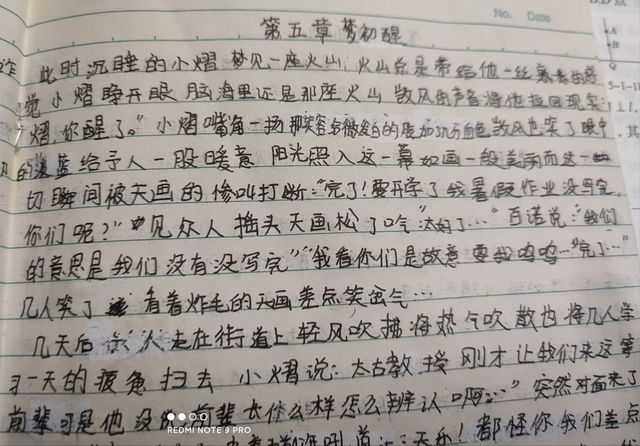 No. Date
第五章 梦初醒
此时沉睡的小熠 梦见一座火山，火山总是带给他一丝熟悉的感
觉 小熠睁开眼 脑海里还是那座火山 敛风的声音将他拉回现实
熠，你醒了。”小熠嘴角一扬 那笑容 加 血色 敛风也笑了 眼中
的 蓝 给予人一股暖意 阳光照入这一幕如画一般美丽而这一
切瞬间被天画的惨叫打断：“完了！要开学了 我暑假作业没写完，
你们呢？”见众人 摇头 天画松了口气“太好了…”百诺说：“我们
的意思是我们没有没写完”“我看你们是故意 要我呜呜…“完了…”
几人笑了 看着炸毛的天画差点笑岔气…
几天后 走在街道上 轻风吹拂 将热气吹散也将几人学
习一天的疲惫扫去 小熠说：太古教授 刚才让我们来这等
前辈可是他没说前辈长什么样怎么辨认啊…”突然对面来了
都怪你 我们差点
REDMI NOTE 9 PRO